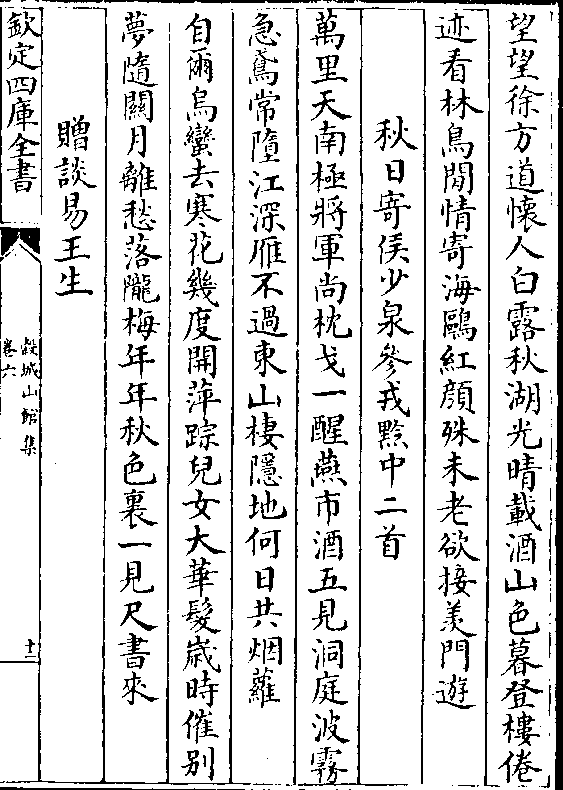 望望徐方道懷人白露秋湖光晴載酒山色暮登樓倦
迹看林鳥閒情寄海鷗紅顔殊未老欲接羨門遊
秋日寄侯少泉參戎黔中二首
萬里天南極將軍尚枕戈一醒燕市酒五見洞庭波霧
急鳶常墮江深雁不過東山棲隱地何日共烟蘿
自爾烏蠻去寒花幾度開萍踪兒女大華髮嵗時催别
夢隨關月離愁落隴梅年年秋色裏一見尺書來
贈談易王生
欽定四庫全書
榖城山館集
卷六
十二